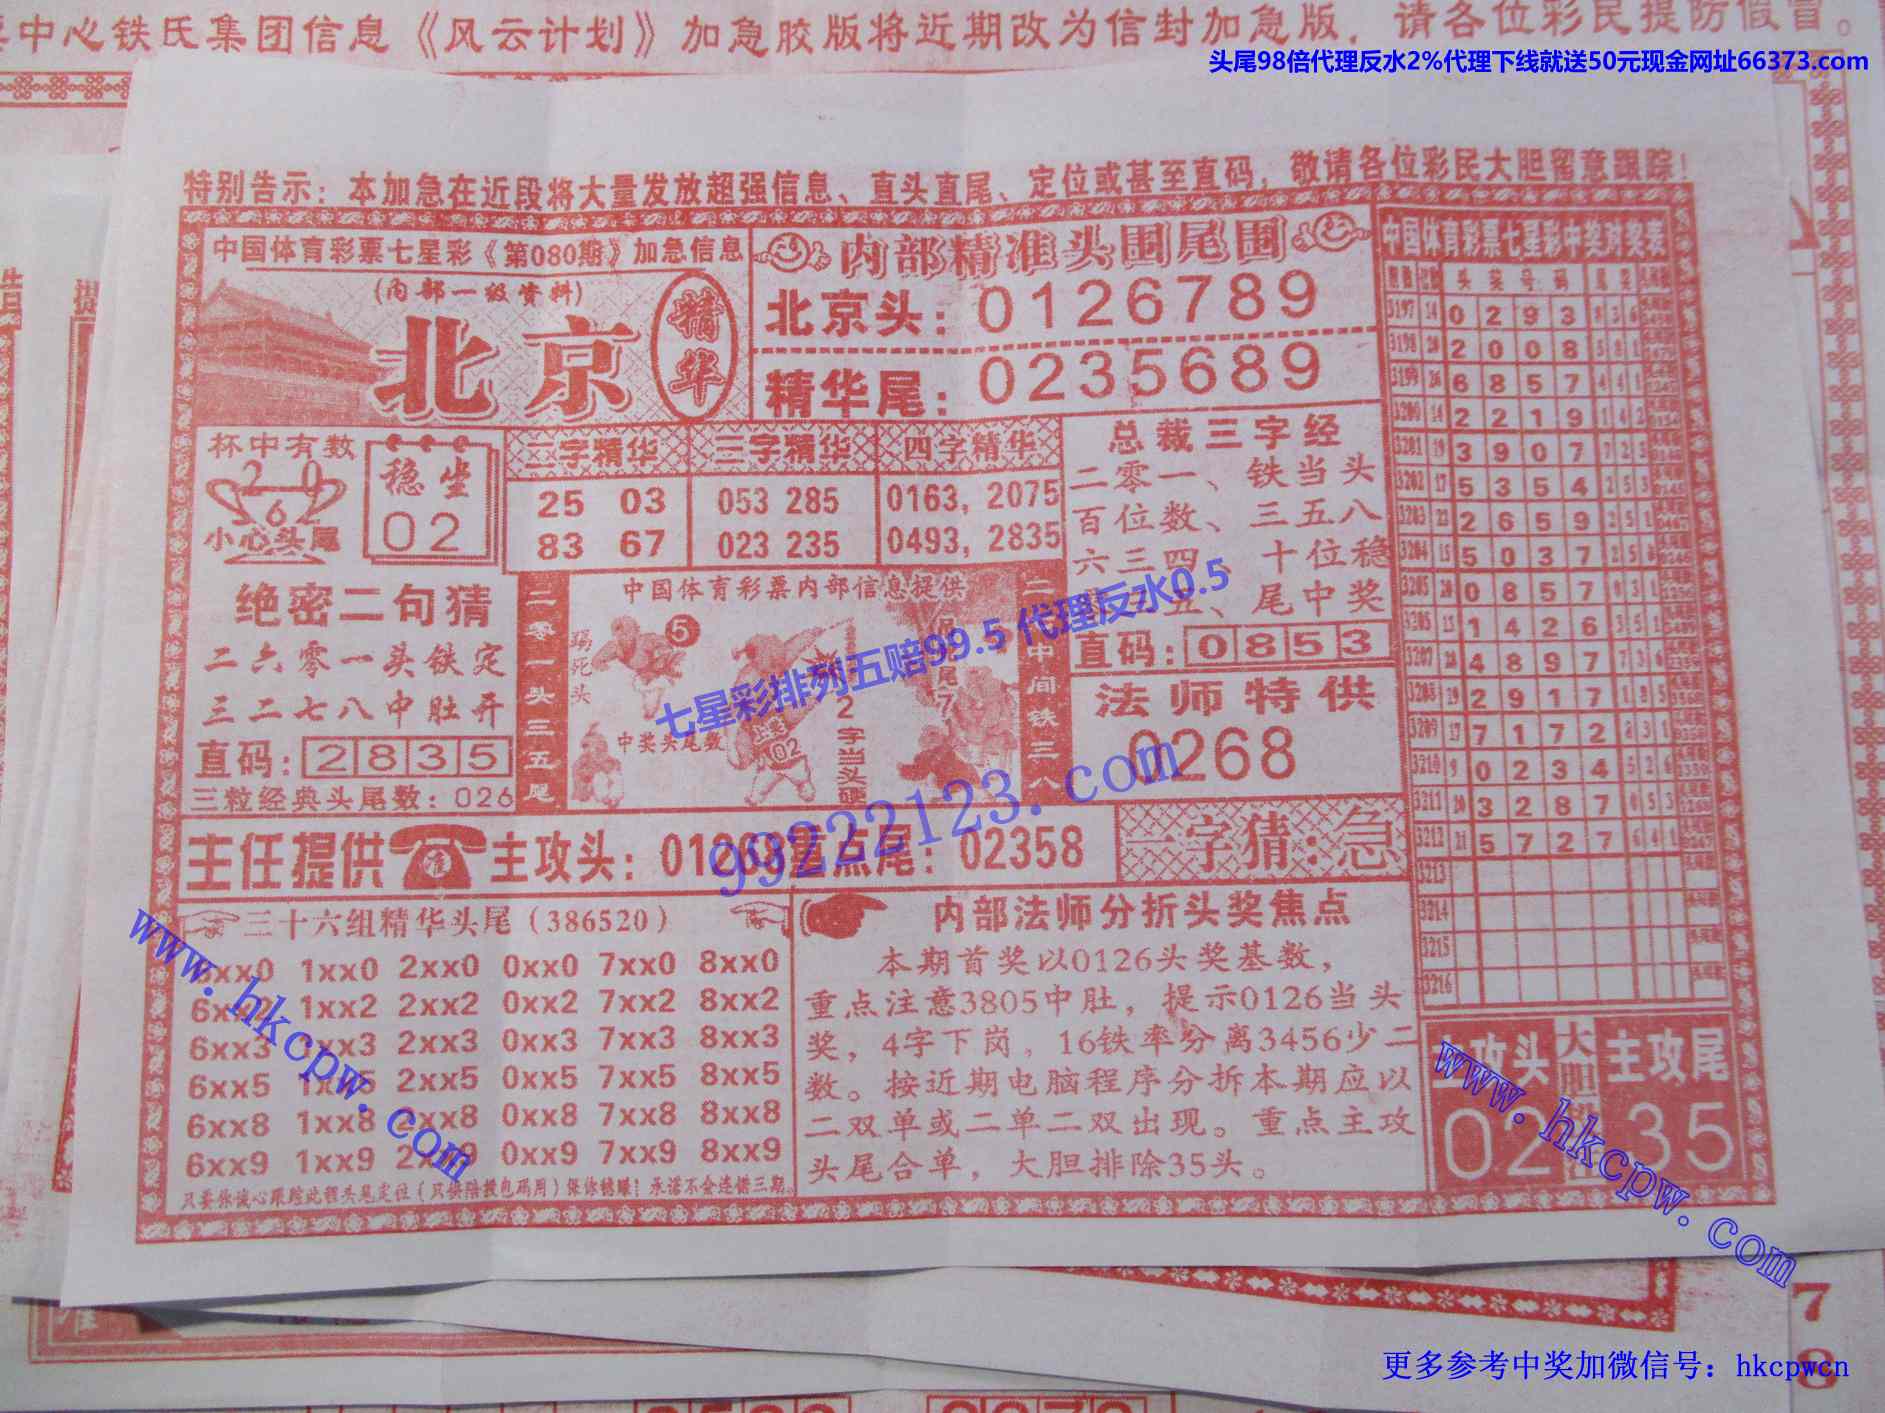 中心铁氏集团信息《风云计划》加急胶版将近期改为信封加急版，请各位彩民提防假冒。
头尾98倍代理反水2%代理下线就送50元现金网址66373.com
特别告示：本加急在近段将大量发放超强信息、直头直尾、定位或甚至直码，敬请各位彩民大胆留意跟踪！
中国体育彩票七星彩《第080期》加急信息
(内部一级资料)
北京
精华
内部精准头围尾围
北京头：0126789
精华尾：0235689
杯中有数
20
6
小心头尾
稳坐
02
二字精华 三字精华 四字精华
25 03 053 285 0163, 2075
83 67 023 235 0493, 2835
总裁三字经
二零一、铁当头
百位数、三五八
六三四、十位稳
五、尾中奖
直码：0853
法师特供
0268
绝密二句猜
二六零一头铁定
三二七八中肚开
直码：2835
三粒经典头尾数：026
二零一头三五尾
中国体育彩票内部信息提供
踢死头
5
中奖头尾数
02
2字当头硬
尾7
中间铁三八
七星彩排列五赔99.5 代理反水0.5
99222123.com
主任提供
准
主攻头：01268重点尾：02358
一字猜：急
三十六组精华头尾（386520）
6xx0 1xx0 2xx0 0xx0 7xx0 8xx0
6xx2 1xx2 2xx2 0xx2 7xx2 8xx2
6xx3 1xx3 2xx3 0xx3 7xx3 8xx3
6xx5 1xx5 2xx5 0xx5 7xx5 8xx5
6xx8 1xx8 2xx8 0xx8 7xx8 8xx8
6xx9 1xx9 2xx9 0xx9 7xx9 8xx9
只要你诚心跟踪此程头尾定位（只供陪投包码用）保你稳赚！承诺不会连错三期。
内部法师分折头奖焦点
本期首奖以0126头奖基数，
重点注意3805中肚，提示0126当头
奖，4字下岗，16铁率分离3456少二
数。按近期电脑程序分拆本期应以
二双单或二单二双出现。重点主攻
头尾合单，大胆排除35头。
中国体育彩票七星彩中奖对奖表
头奖号码
3197 14 0 2 9 3 8 3 6
3198 20 2 0 0 8 5 8 1
3199 26 6 8 5 7 4 4 1
3200 14 2 2 1 9 1 4 2
3201 19 3 9 0 7 7 2 3
3202 17 5 3 5 4 2 5 3
3203 22 2 6 5 9 2 5 1
3204 15 5 0 3 7
3205 20 0 8 5 7
1 4 2 6 3 5 1
3207 28 4 8 9 7 7 3 6
3208 2 9 1 7
3209 17 7 1 7 2 2 3 1
3210 9 0 2 3 4 5 2 6
3211 20 3 2 8 7 0 5 3
3212 21 5 7 2 7 6 4 1
3213
3214
3215
3216
主攻头
02
大胆
主攻尾
35
www.hkcpw.com
www.hkcpw.com
7
8
更多参考中奖加微信号：hkcpwcn